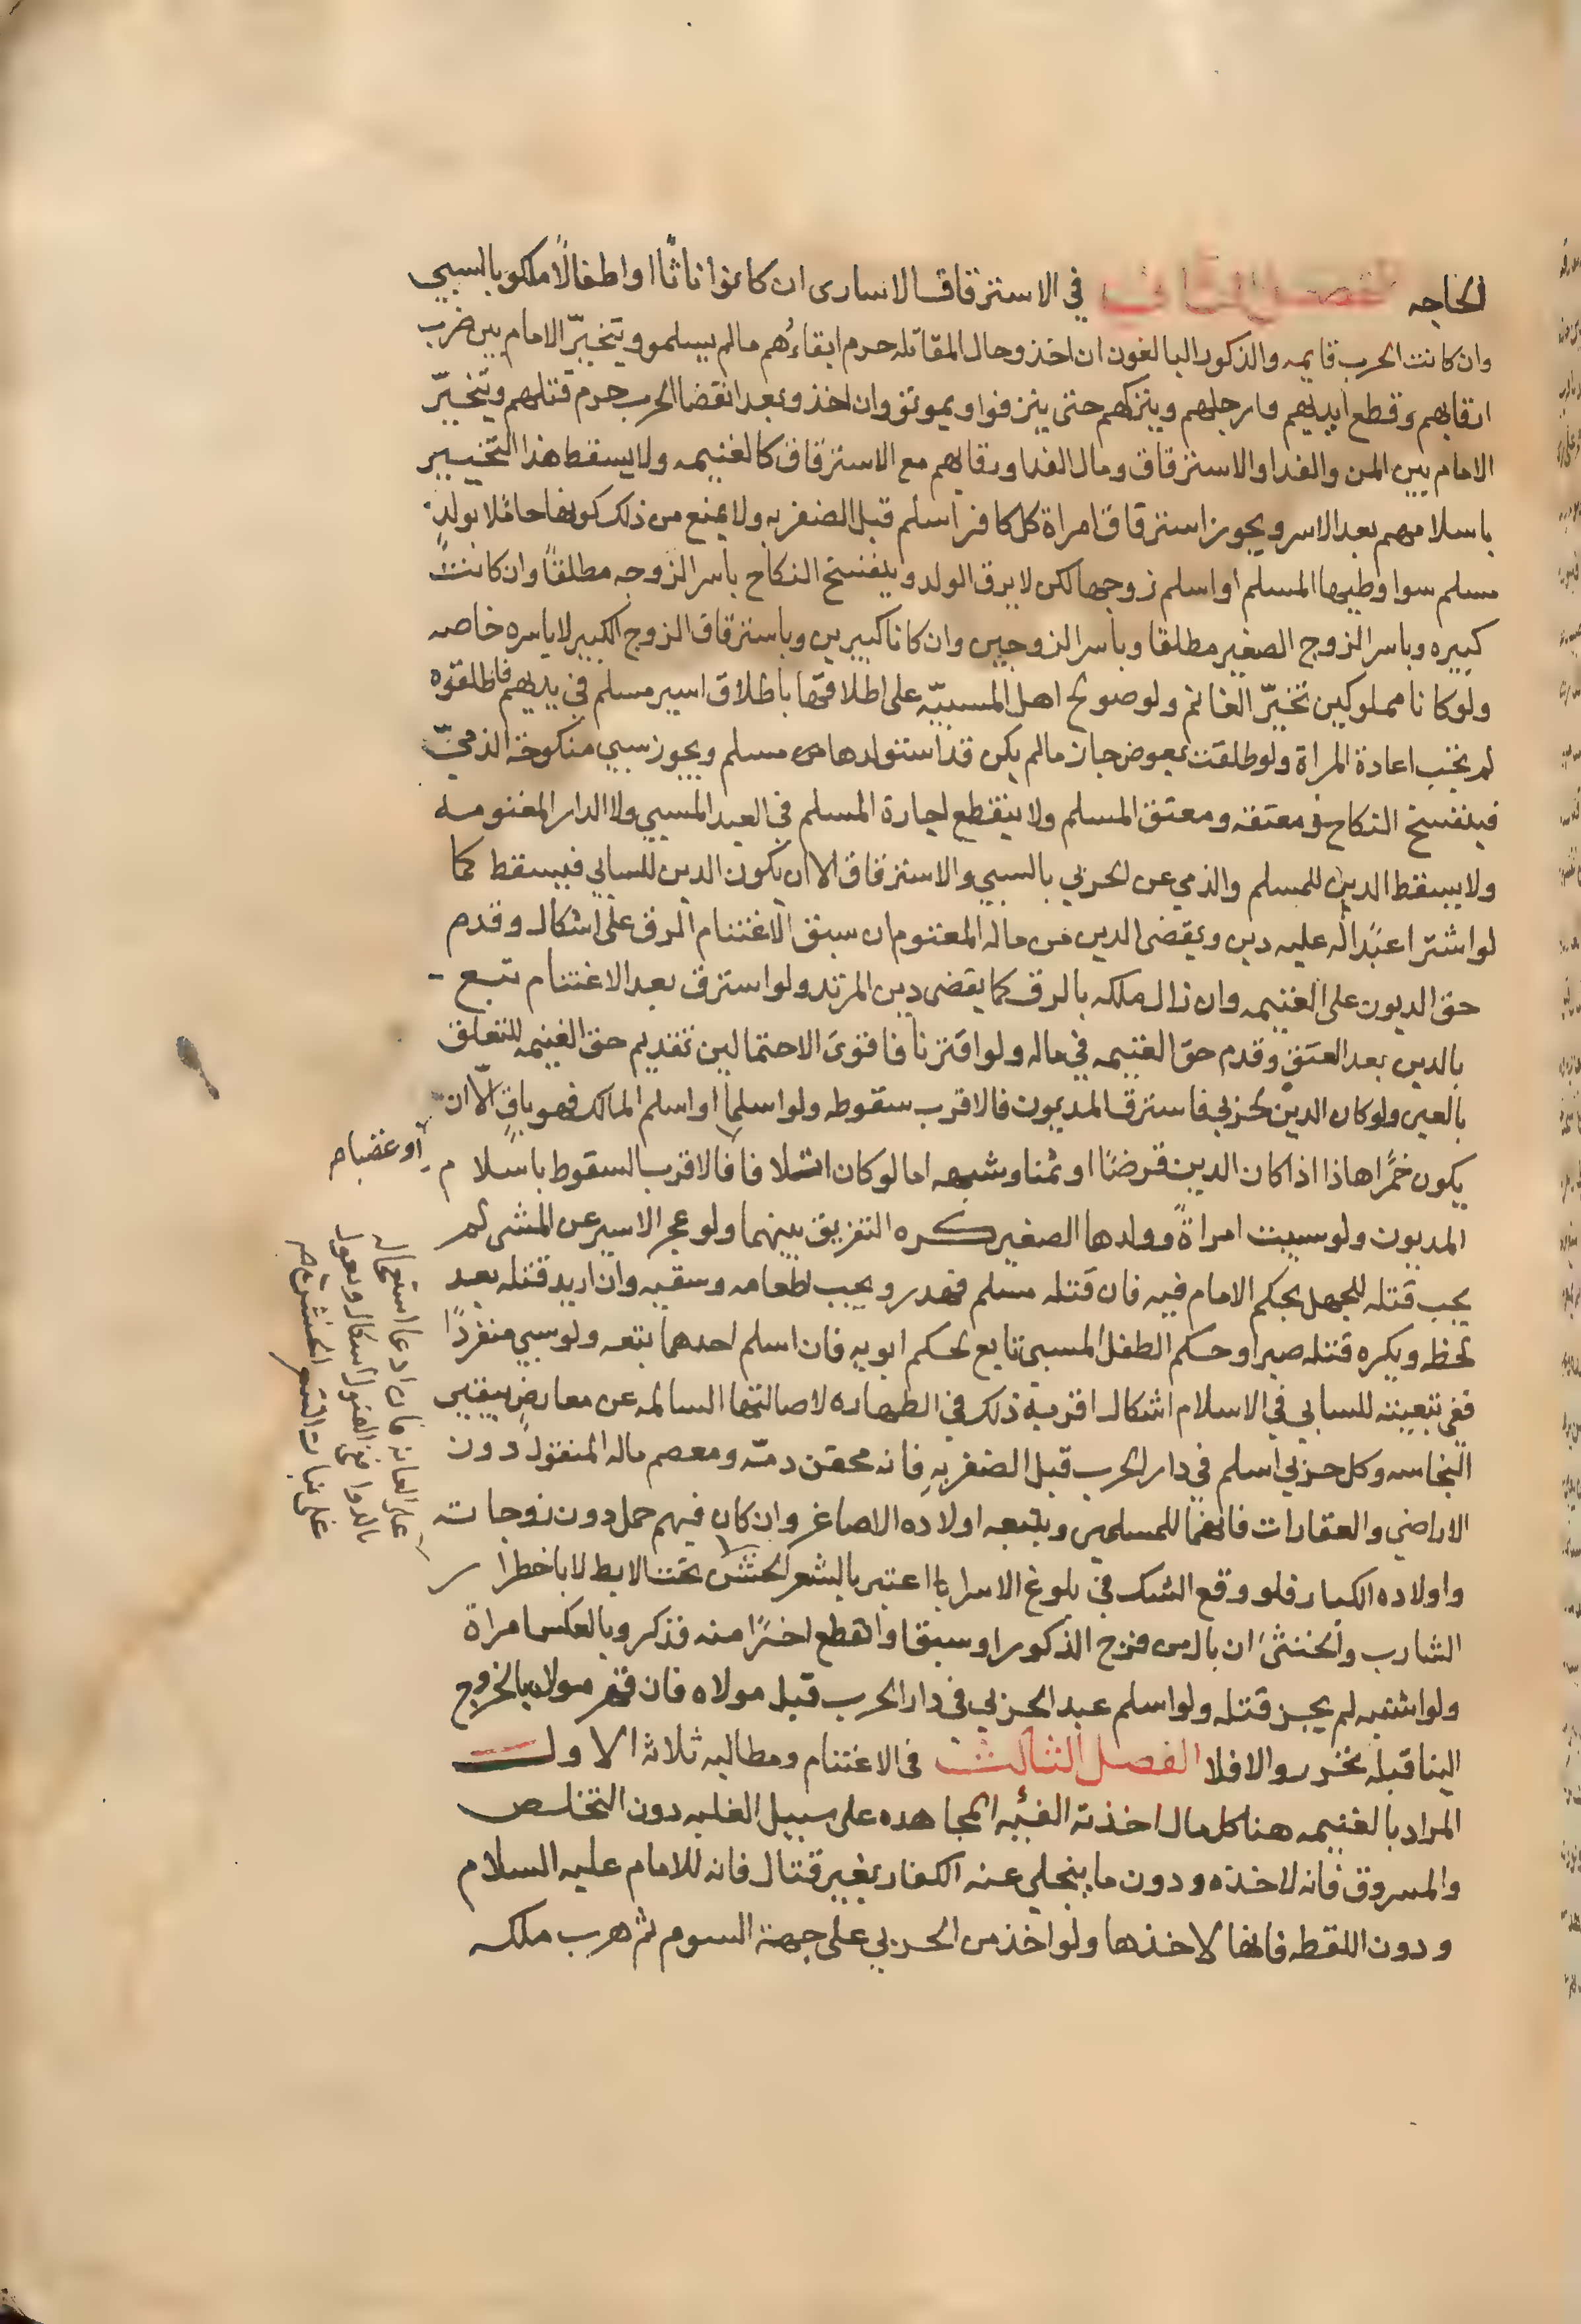 الحاجه الفصل الثاني في الاسترقاق الاسارى ان كانوا اناثًا او اطفالًا ملكو بالسبي
وان كانت الحرب قايمه والذكور البالغون ان اخذو حال المقاتله حرم ابقاءُهم مالم يسلمو ويتخيّر الامام بين ضرب
ارقابهم وقطع ايديهم وارجلهم ويتركهم حتى ينزفوا ويموتو وان اخذو بعد انقضا الحرب حرم قتلهم ويتخيّر
الامام بين المن والفدا والاسترقاق ومال الفدا ورقابهم مع الاسترقاق كالغنيمه ولا يسقط هذا التخيير
باسلامهم بعد الاسر ويجوز استرقاق امراة كل كافر اسلم قبل الضفر به ولا يمنع من ذلك كونها حاملا بولدٍ
مسلم سوا وطيها المسلم او اسلم زوجها لكن لا يرق الولد وينفسخ النكاح باسر الزوجه مطلقًا وان كانت
كبيره وباسر الزوج الصغير مطلقا وباسر الزوجين وان كانا كبيرين وباسترقاق الزوج الكبير لا باسره خاصه
ولو كانا مملوكين تخيّر الغانم ولو صولح اهل المسبيّه على اطلاقها باطلاق اسير مسلم في يديهم فاطلقوه
لم يجب اعادة المراة ولو طلقت بعوض جاز مالم يكن قد استولدها مسلم ويجوز سبي منكوحة الذميّ
فينفسخ النكاح و معتقه ومعتق المسلم ولا ينقطع اجارة المسلم في العبد المسبي ولا الدار المغنومه
ولا يسقط الدين للمسلم والذمي عن الحربي بالسبي والاسترقاق الا ان يكون الدين للسابي فيسقط كما
لو اشترا عبدًا له عليه دين ويقضى الدين من ماله المغنوم ان سبق الاغتنام الرق على اشكال وقدم
حق الديون على الغنيمه وان زال ملكه بالرق كما يقضى دين المرتد ولو استرق بعد الاغتنام تبع
بالدين بعد العتق وقدم حق الغنيمه في ماله ولو اقترنا فاقوى الاحتمالين تقديم حق الغنيمه للتعلق
بالعين ولو كان الدين لحربي فاسترق المديون فالاقرب سقوطه ولو اسلما او اسلم المالك فهو باقٍ الّا ان
يكون خمرًا هاذا اذا كان الدين قرضًا او ثمنا وشبهه اما لو كان اتلافا فالاقرب السقوط باسلام
او غصبا ص
المديون ولو سبيت امراةً وولدها الصغير كره التفريق بينهما ولو عجز الاسير عن المشي لم
يجب قتله للجهل بحكم الامام فيه فان قتله مسلم فهدر ويجب اطعامه وسقيه وان اريد قتله بعد
لحظه ويكره قتله صبرا وحكم الطفل المسبي تابع لحكم ابويه فان اسلم احدهما تبعه ولو سبي منفردًا
ففي تبعيته للسابي في الاسلام اشكال اقربه ذلك في الطهاره لاصالتها السالمه عن معارضٍ يقيني
النجاسه وكل حربي اسلم في دار الحرب قبل الضفر بهِ فانه محقن دمّه ومعصم ماله المنقول دون
الاراضي والعقارات فانها للمسلمين ويتبعه اولاده الاصاغر وان كان فيهم حمل دون زوجاته
واولاده الكبار فلو وقع الشك في بلوغ الاسرا اعتبر بالشعر الخشن تحت الابط لا باخطرار
على العانه فان ادعا استعماله
بالدوا ففي القبول اشكال ويعول
على نبات الشعر الخشن ص
الشارب والخنثى ان بال من فرج الذكور او سبقا وانقطع اخرًا منه فذكر وبالعكس امراة
ولو اشتبه لم يجز قتله ولو اسلم عبد الحربي في دار الحرب قبل مولاه فان قهر مولاه بالخروج
الينا قبله تحرر والا فلا الفصل الثالث في الاغتنام ومطالبه ثلاثه الاول
المراد بالغنيمه هنا كل مال اخذته الفئه المجاهده على سبيل الغلبه دون التخلص
والمسروق فانه لاخذه ودون ما ينجلي عنه الكفار بغير قتال فانه للامام عليه السلام
ودون اللقطه فانها لاخذها ولو اخذ من الحربي على جهة السوم ثم هرب ملكه